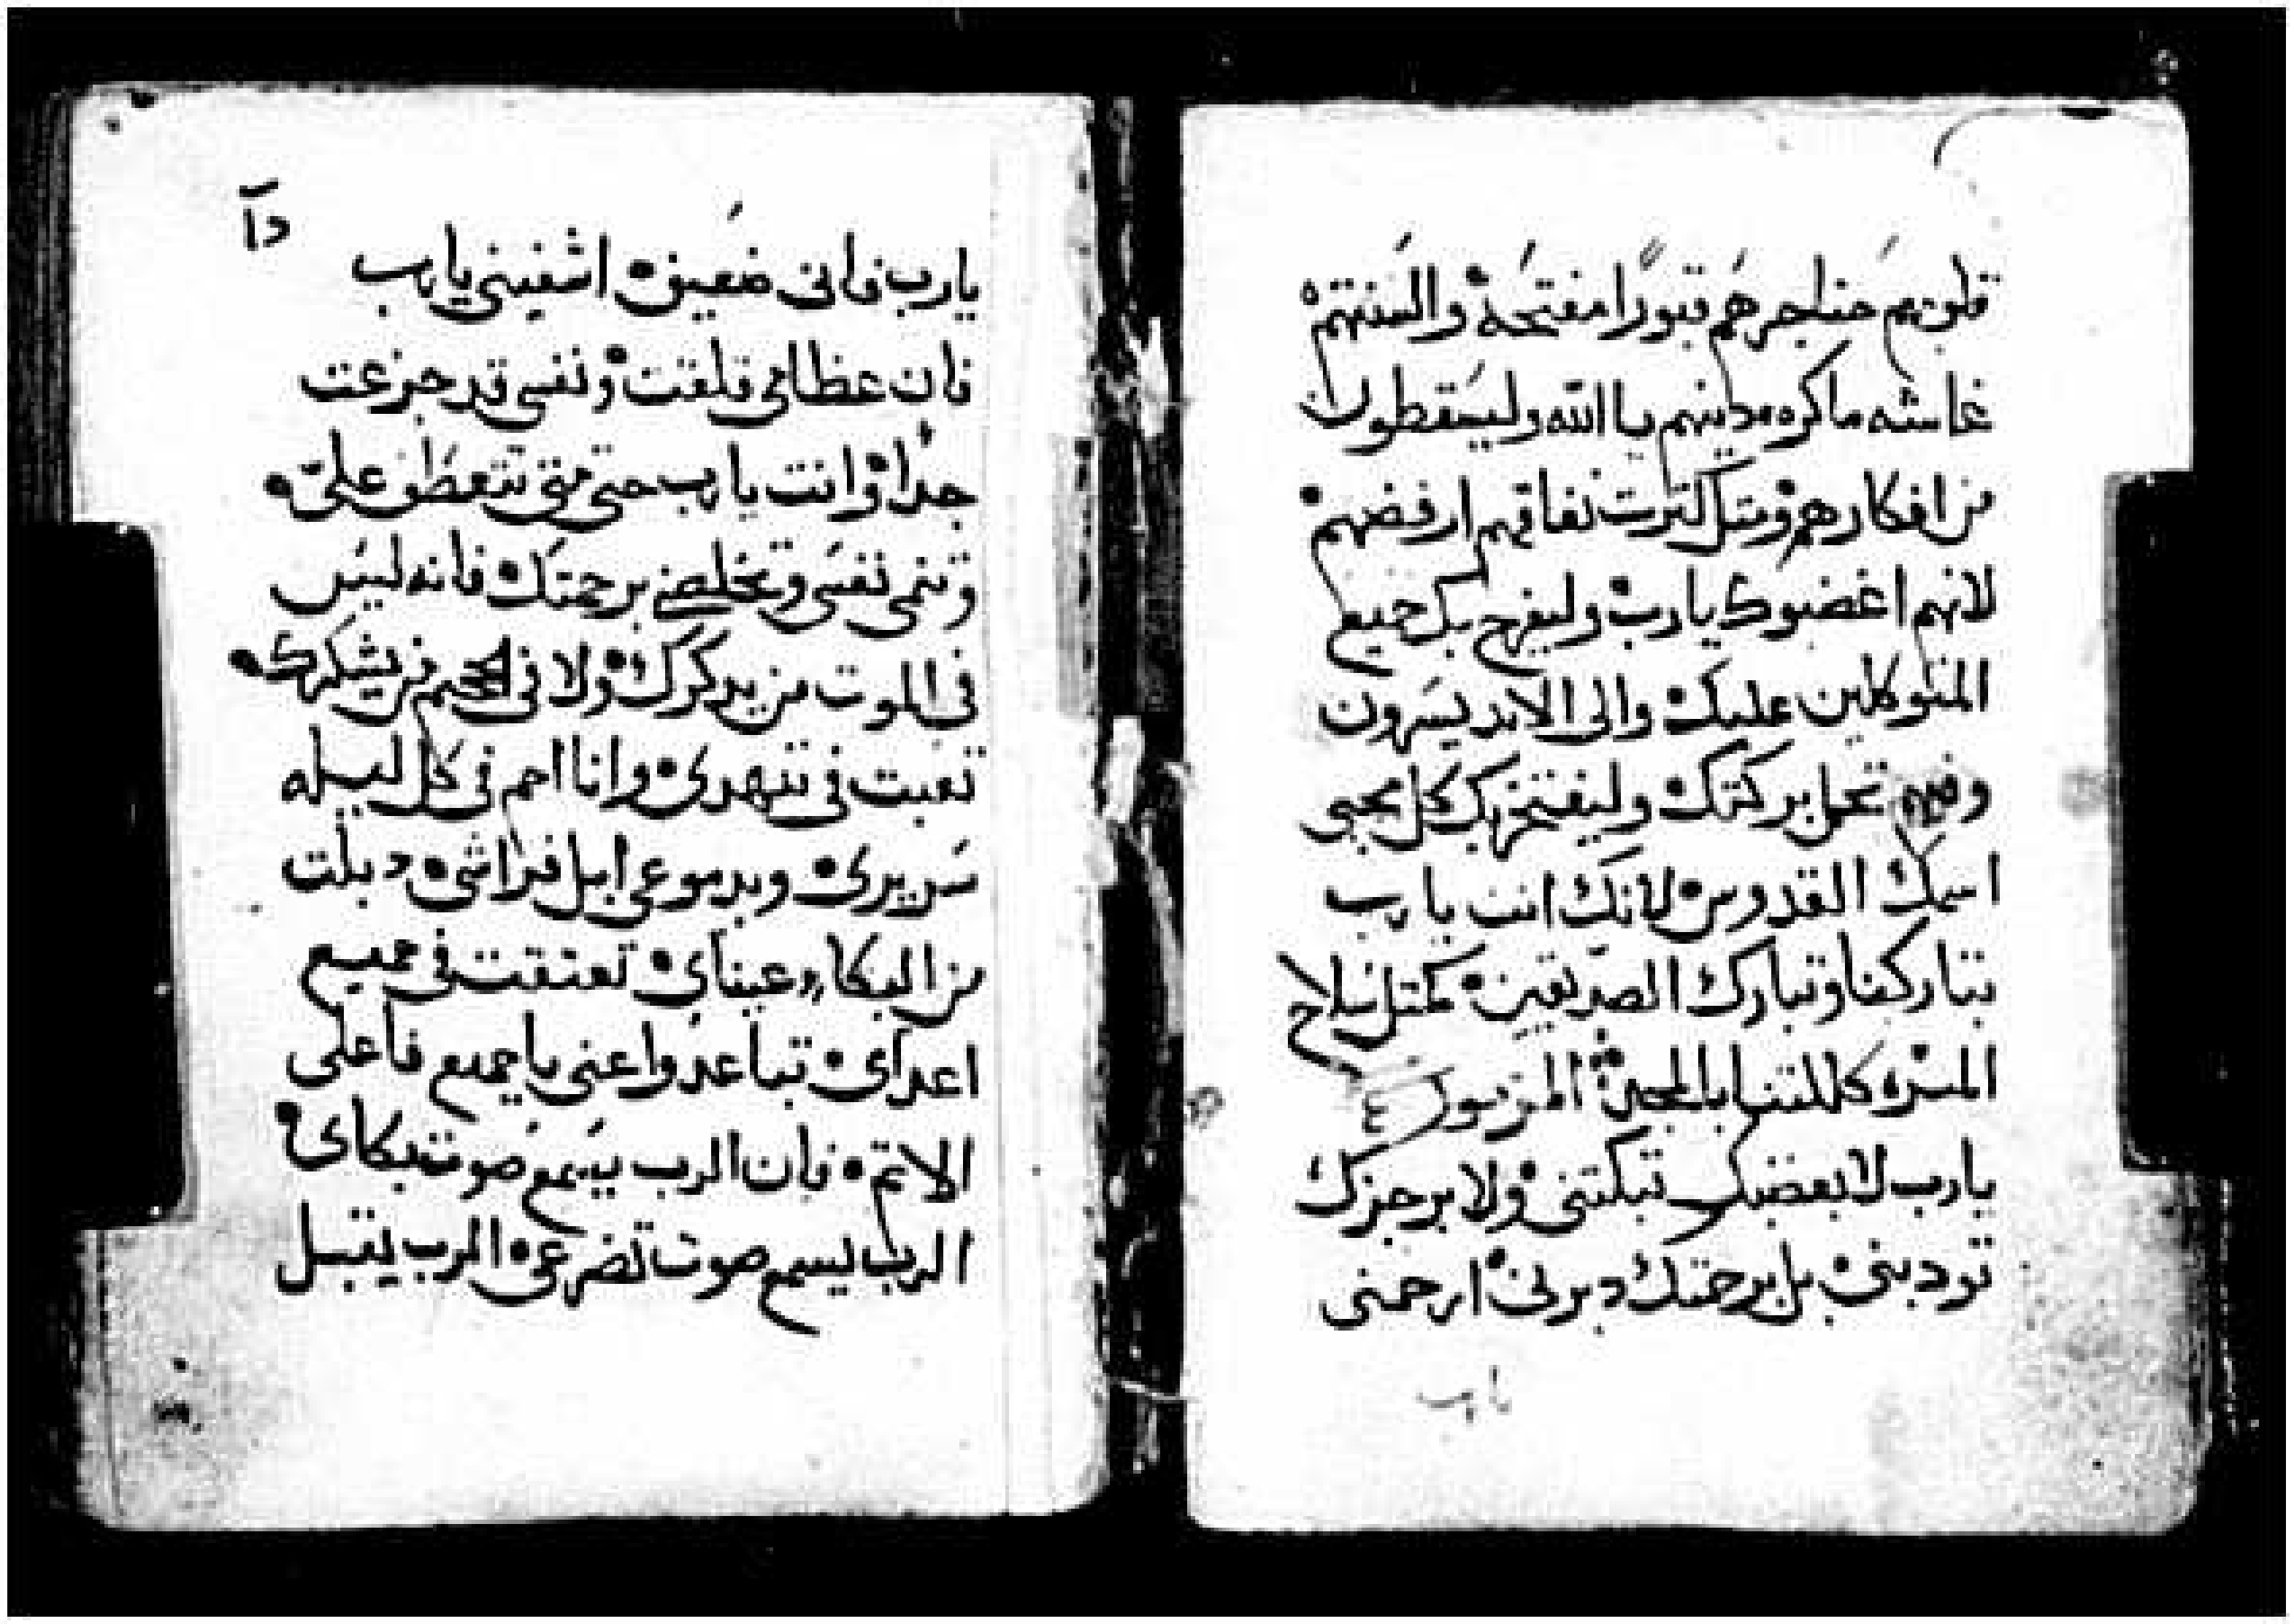 قلوبهم حناجرهم قبورًا مفتحة والسنتهم
غاشه ماكره دينهم يا الله وليسقطوا
من افكارهم ومتل كترت نفاقهم ارفضهم
لانهم اغضبوك يارب وليفرح بك جميع
المتوكلين عليك والى الابد يسرون
وفيهم تحل بركتك وليفتخر بك كل محبى
اسمك القدوس لانك انت يارب
تباركنا وتبارك الصديقين كمتل سلاح
المسره كللتنا المزمور
يارب لا بغضبك تبكتنى ولا برجزك
تودبنى بل برحمتك دبرنى ارحمنى
يارب
يارب فانى ضعيف اشفينى يارب
فان عظامى قلقت ونفسى قد جزعت
جدا وانت يارب حتى متى تتعطف على
وتنمى نفسى وتخلصنى برحمتك فانه ليس
فى الموت من يدكرك ولا فى الجحيم من يشكرك
تعبت فى تنهدى وانا احم فى كل ليله
سريرى وبدموعى ابل فراشى دبلت
من البكاء عيناى تعتقت فى جميع
اعداى تباعدوا عنى يا جميع فاعلى
الاتم فان الرب يسمع صوت بكاى
الرب يسمع صوت تضرعى الرب يقبل